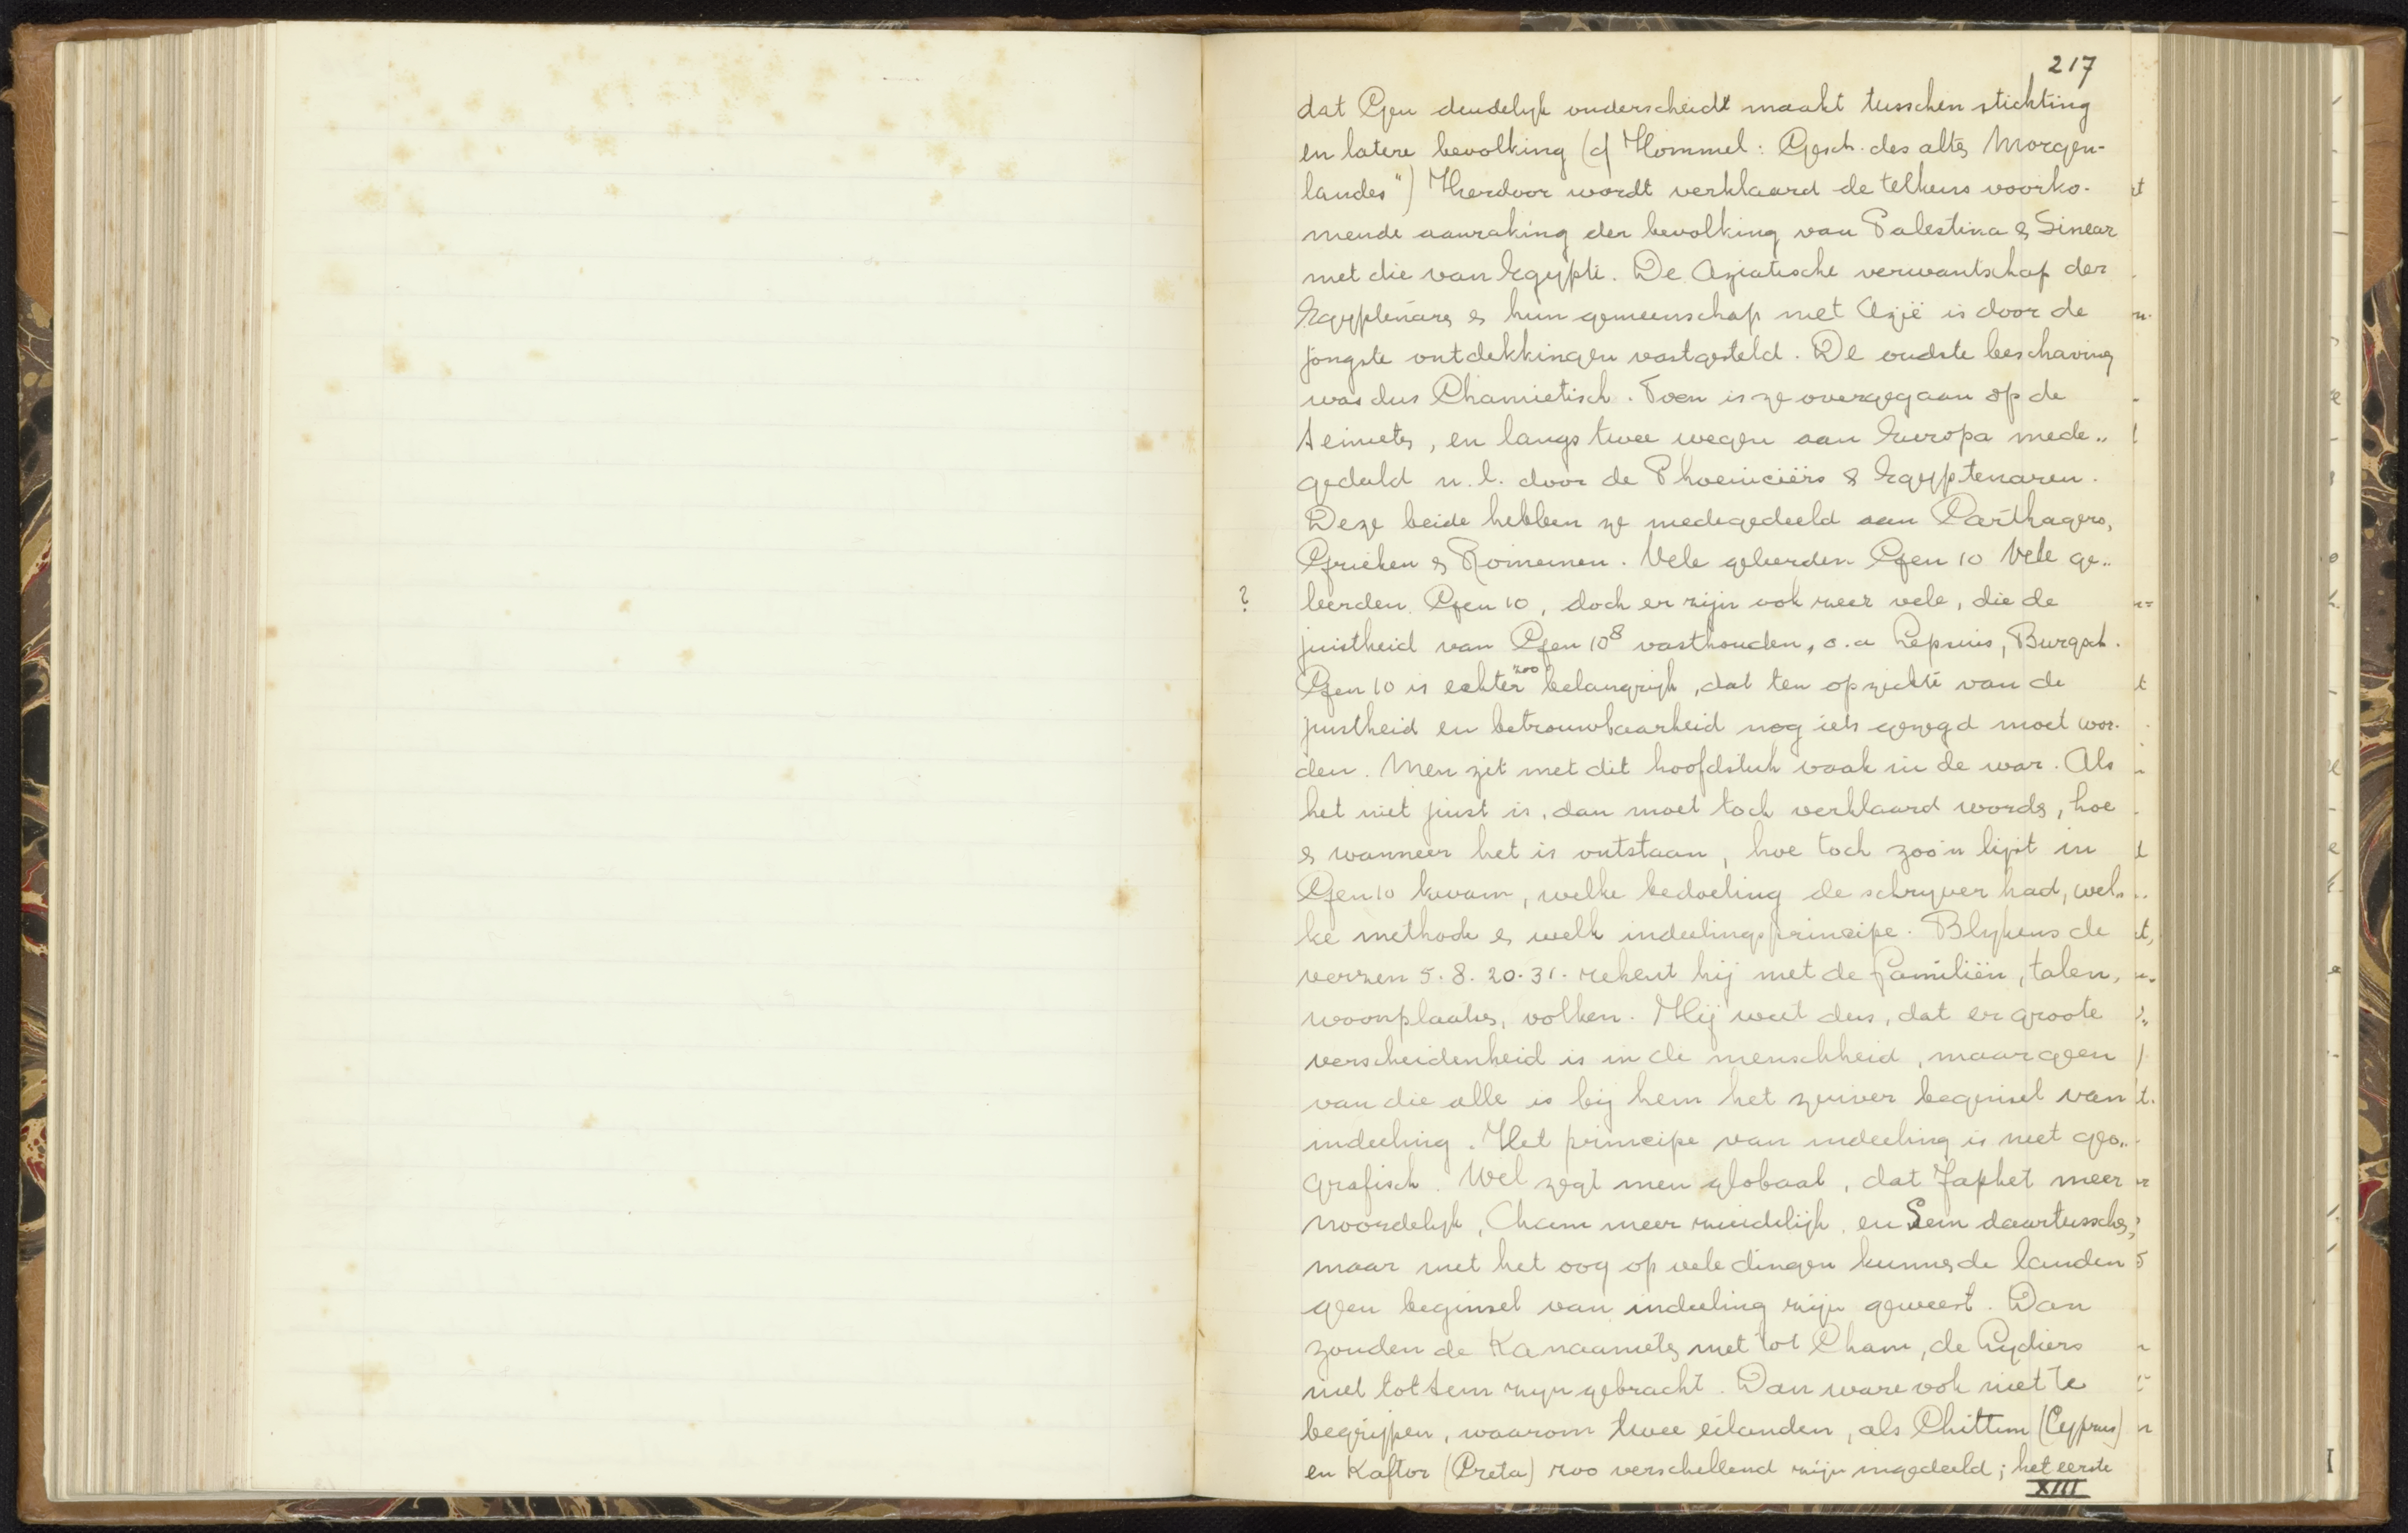 217
dat Gen duidelyk onderscheidt maakt tusschen stichting
en latere bevolking (cf Hommel: Gesch. des altes Morgen-
landes") Hierdoor wordt verklaard de telkens voorko-
mende aanraking der bevolking van Palestina & Sinear
met die van Egypte. De Aziatische verwantschap der
Egyptenars & hun gemeenschap met Azië is door de
jongste ontdekkingen vastgesteld. De oudste beschaving
was dus Chamietisch. Toen is ze overgegaan op de
Semiets, en langs twee wegen aan Europa mede„
gedeeld n.l. door de Phoeniciërs & Egyptenaren.
Deze beide hebben ze medegedeeld aan Carthagers,
Grieken & Romeinen. Vele geleerden Gen 10 Vele ge„
? leerden Gen 10, doch er zijn ook weer vele, die de
juistheid van Gen 10⁸ vasthouden, o.a Lepsius, Burgsch.
Gen 10 is echter zoo belangrijk, dat ten opzichte van de
juistheid en betrouwbaarheid nog iets gezegd moet wor-
den. Men zit met dit hoofdstuk vaak in de war. Als
het niet juist is, dan moet toch verklaard words, hoe
& wanneer het is ontstaan, hoe toch zoo'n lijst in
Gen 10 kwam, welke bedoeling de schryver had, wel„
ke methode & welk indeelingsprincipe. Blykens de
verzen 5. 8. 20. 31. rekent hij met de familiën, talen,
woonplaats, volken. Hij weet dus, dat er groote
verscheidenheid is in de menschheid, maar geen
van die alle is bij hem het zuiver beginsel van
indeeling. Het principe van indeeling is niet geo„
grafisch. Wel zegt men globaal, dat Japhet meer
noordelyk, Cham meer zuidelijk, en Sem daartussche,
maar met het oog op vele dingen kunne de landen
geen beginsel van indeeling zijn geweest. Dan
zouden de Kanaaniets niet tot Cham, de Lydiers
niet tot Sem zyn gebracht. Dan ware ook niet te
begrijpen, waarom twee eilanden, als Chittim (Cyprus)
en Kaftor (Creta) zoo verschellend zijn ingedeeld; het eerste
XIII